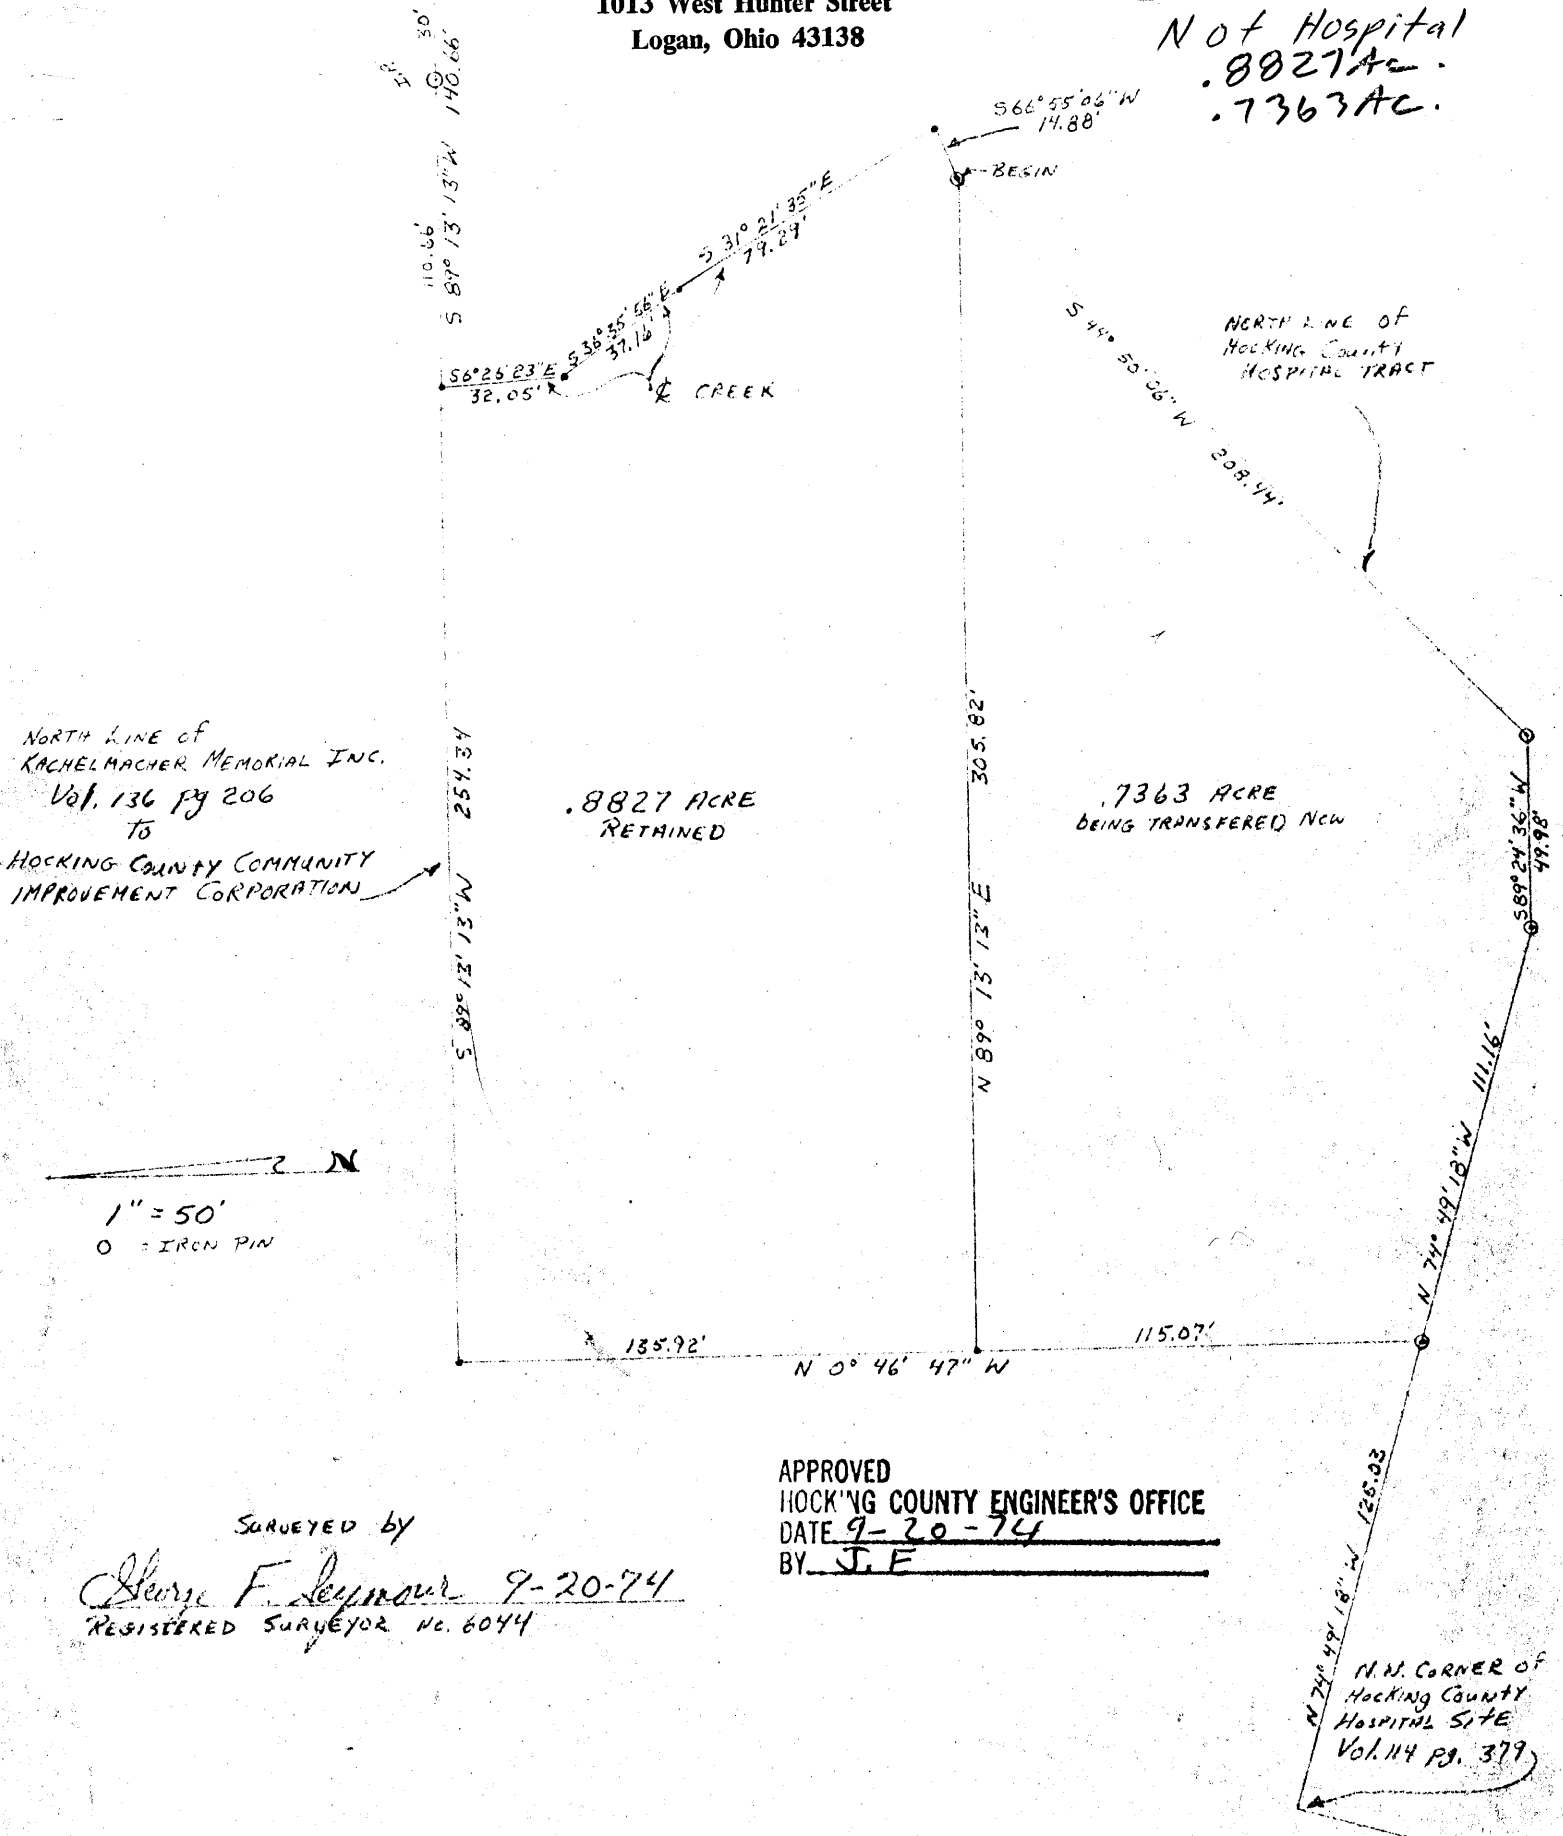 1013 West Hunter Street
Logan, Ohio 43138
Not Hospital
.8827 Ac.
.7363 AC.
I.P.
30'
S 89° 13' 13" W 140.66'
110.66'
S66° 55' 06" W
14.88'
BEGIN
S 31° 21' 35" E
79.29'
S 36° 35' 56" E
37.16'
S6° 26' 23" E
32.05'
℄ CREEK
S 44° 50' 06" W 208.44'
NORTH LINE OF
HOCKING County
HOSPITAL TRACT
NORTH LINE of
KACHELMACHER MEMORIAL INC.
Vol. 136 pg 206
TO
HOCKING COUNTY COMMUNITY
IMPROVEMENT CORPORATION
S 89° 13' 13" W 254.34
.8827 ACRE
RETAINED
N 89° 13' 13" E 305.82'
.7363 ACRE
BEING TRANSFERED NOW
S89° 24' 36" W
49.98'
N 74° 49' 18" W 111.16'
N
1" = 50'
O = IRON PIN
135.92'
115.07'
N 0° 46' 47" W
N 74° 49' 18" W 125.03
APPROVED
HOCKING COUNTY ENGINEER'S OFFICE
DATE 9-20-74
BY J.F
SURVEYED by
George F. Seymour 9-20-74
REGISTERED SURVEYOR No. 6044
N.W. CORNER OF
Hocking County
HOSPITAL SITE
Vol. 114 pg. 379